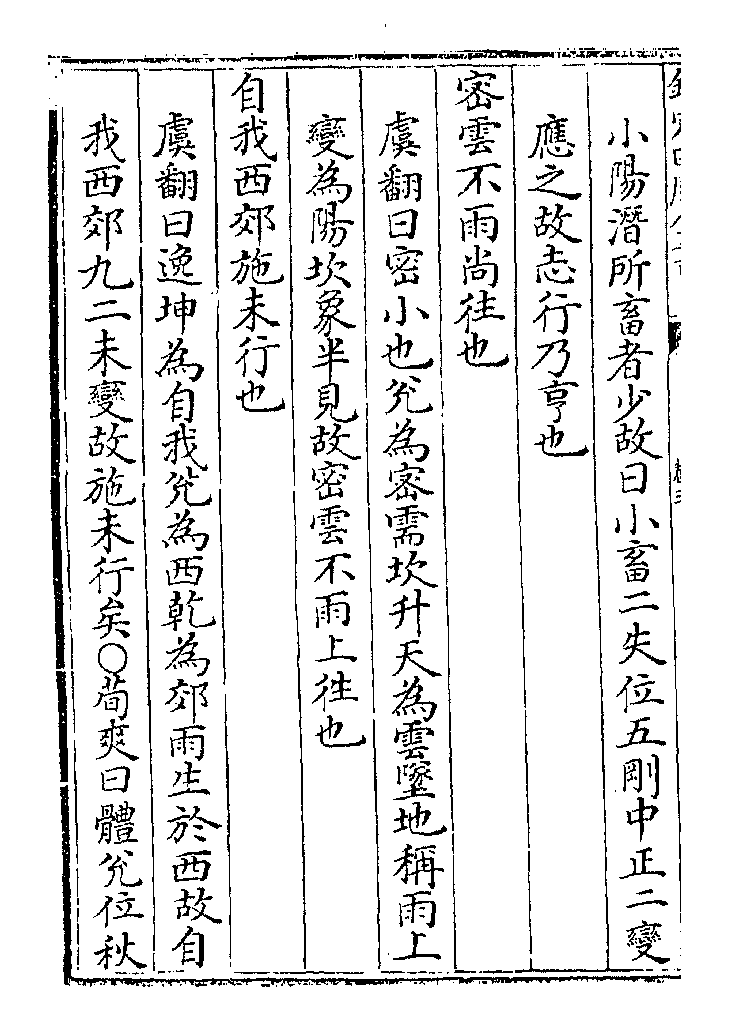 小陽潛所畜者少故曰小畜二失位五剛中正二變
應之故志行乃亨也
密雲不雨尚往也
虞翻曰密小也兊為密需坎升天為雲墜地稱雨上
變為陽坎象半見故密雲不雨上往也
自我西郊施未行也
虞翻曰逸坤為自我兊為西乾為郊雨生於西故自
我西郊九二未變故施未行矣○荀爽曰體兊位秋